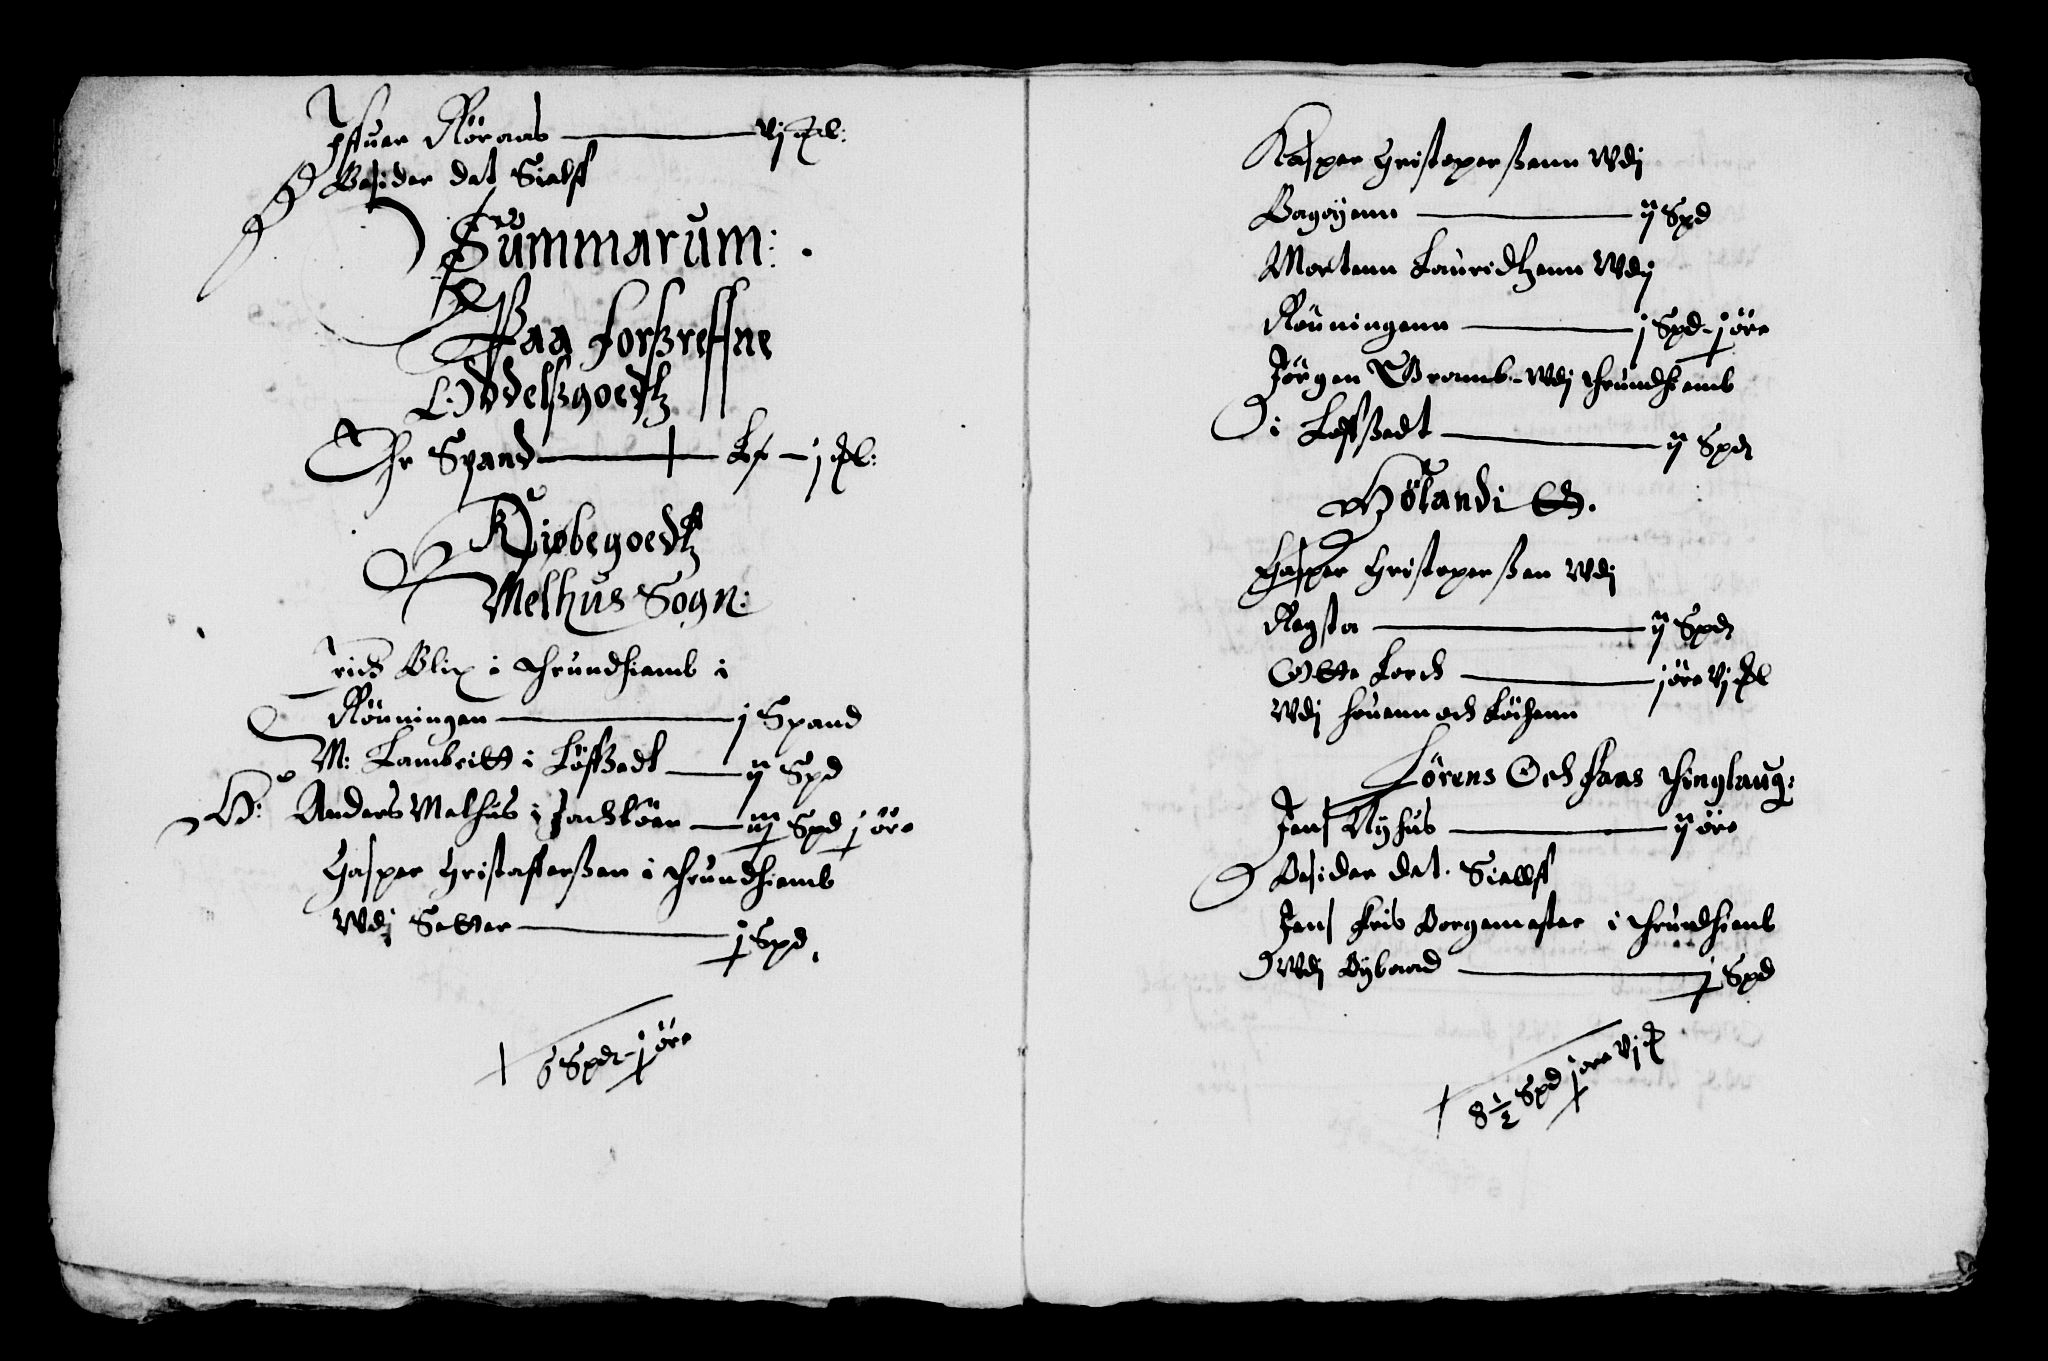 Iffuer Röraas — vj #l:
Besider det Sielff
Summarum:
Paa forßreffne
Oddelßgoedtz
Ehr Spand — Lf — j #l:
Kiøbegoedtz
Melhus Sogn:
Frids Blix i Thrundhiemb i
Rönningen — j Spand
M: Lambritt i Löffßedt — ij Spd
H: Anders Melhus i — iij Spd j öre
Casper Christofferßen i Thrundhiemb
Wdj Setter — j Spd.
6 Spd — j öre
Kasper Christoperßenn Wdj
Bagöyenn — ij Spd
Mortenn Lauridtzenn Wdj
Rönningenn — j Spd — j öre
Jörgen Bramb — Wdj Thrundhiemb
i Löffßedt — ij Spd
Hölandi S.
Casper Christoperßen Wdj
Regsta — ij Spd
Otte Lorch — j öre vj #l
Wdj Fruenn och Löchenn
Lörens Och Faas Thinglaug:
Jens Nyhus — ij öre
Besider det Sielff
Jens Friis Borgemester i Thrundhiemb
Wdj Bybaad — j Spd
8 1/2 Spd j öre vj #